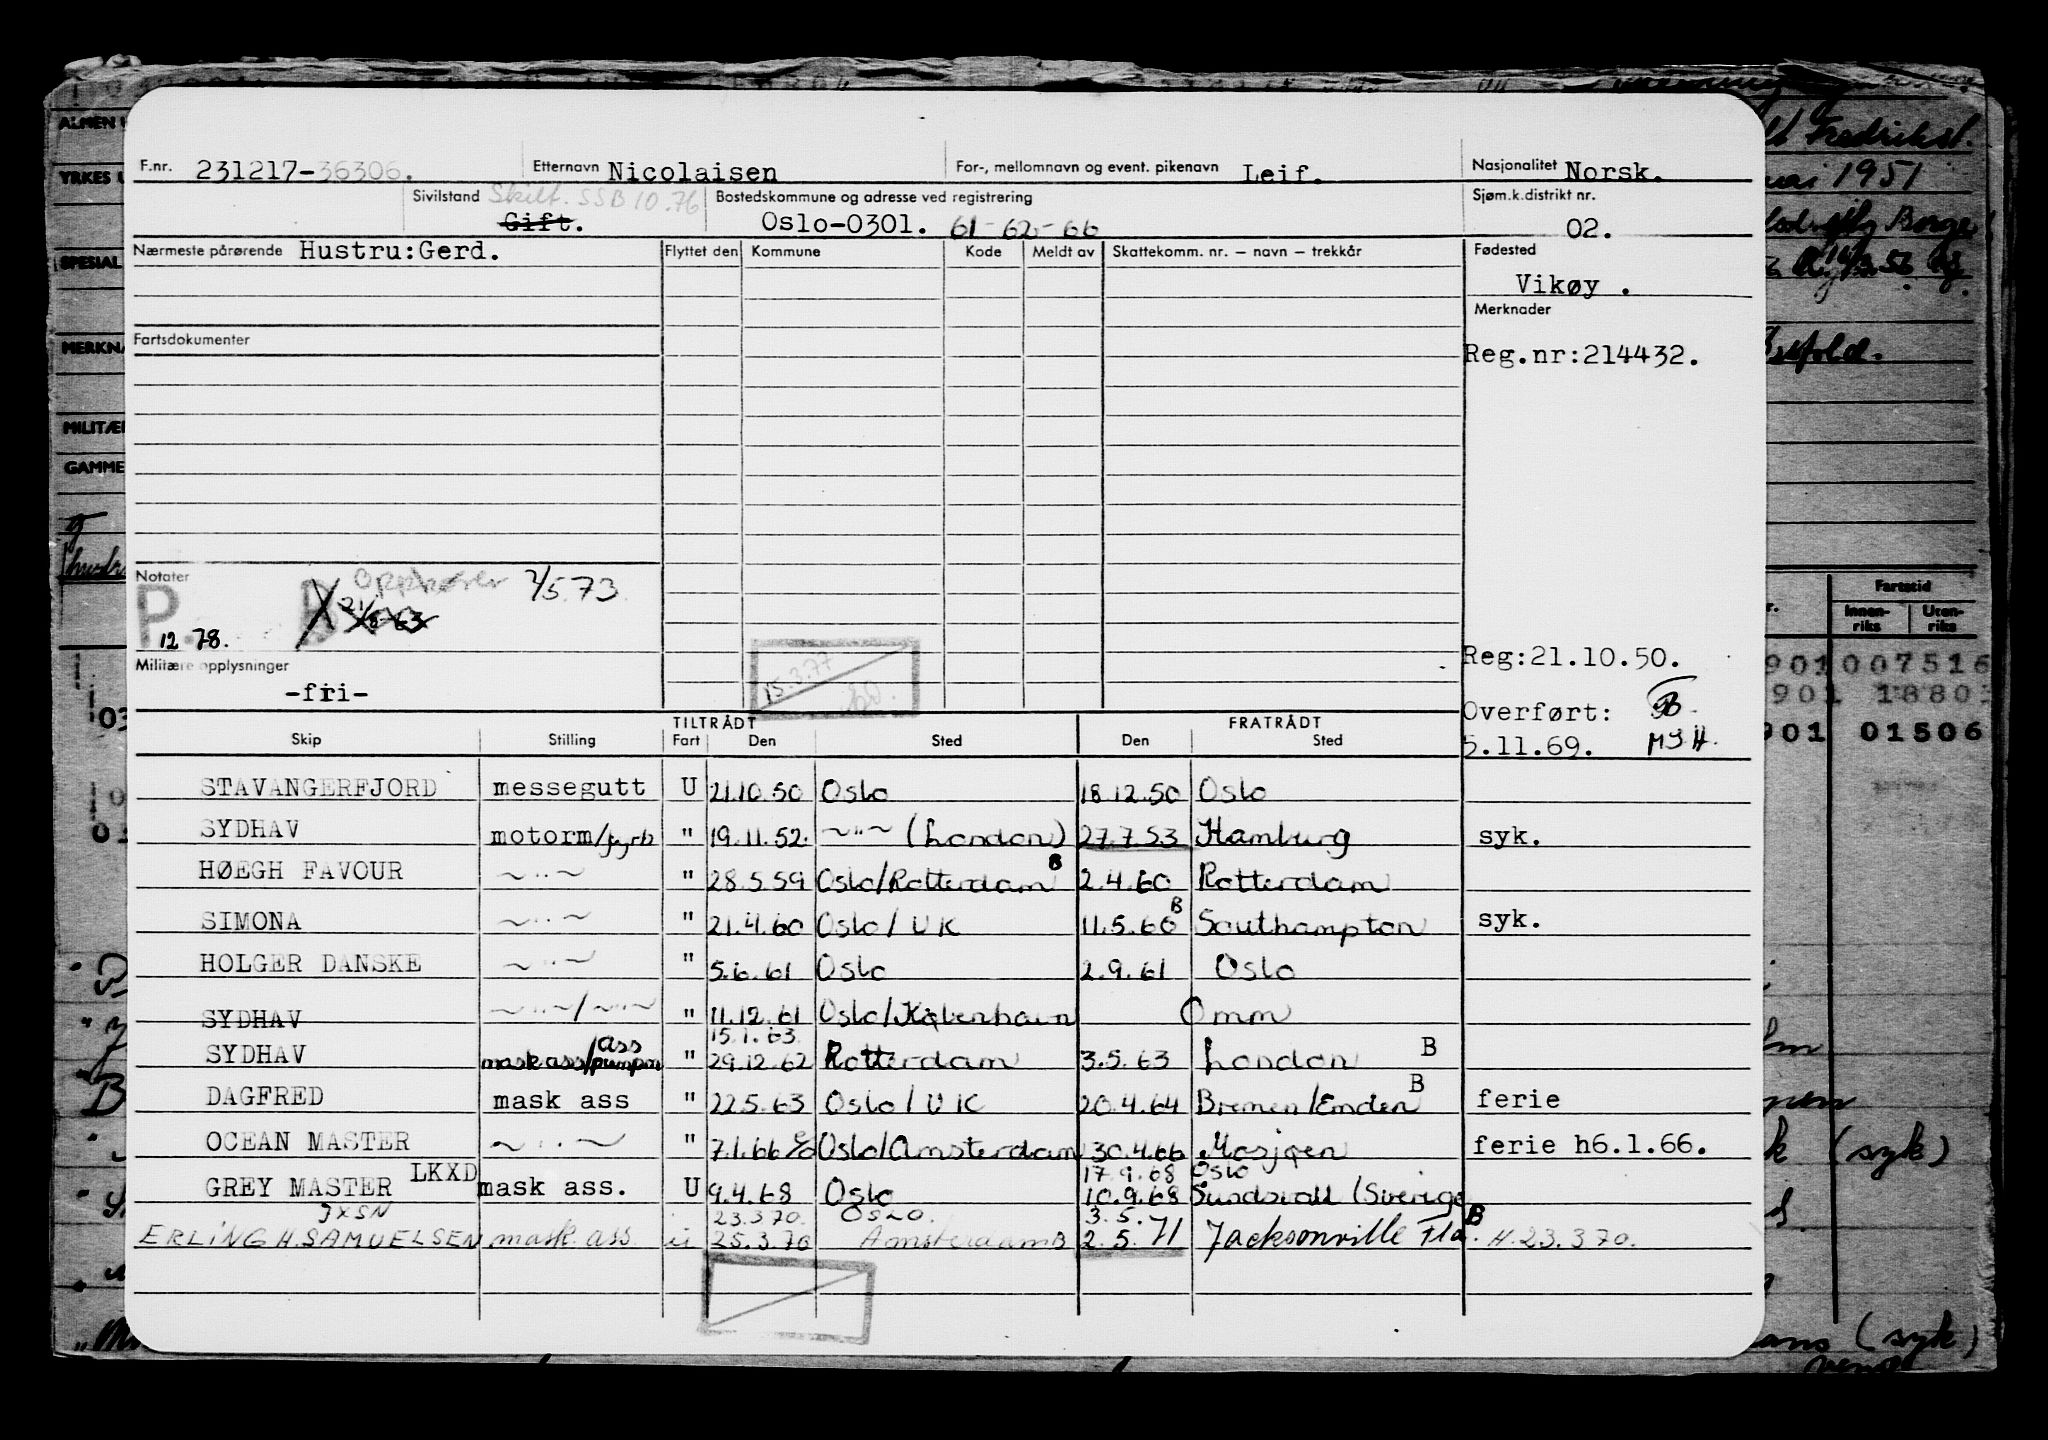 F.nr. 231217-36306. Etternavn Nicolaisen For-, mellomnavn og event. pikenavn Leif. Nasjonalitet Norsk.
Sivilstand Skilt. SSB 10.76 Gift. Bostedskommune og adresse ved registrering Oslo-0301. 61-62-66 Sjøm.k.distrikt nr. 02.
Nærmeste pårørende Hustru:Gerd. Flyttet den Kommune Kode Meldt av Skattekomm. nr. – navn – trekkår Fødested
Vikøy .
Merknader
Fartsdokumenter
Reg.nr:214432.
Notater Opphører 7/5.73
P. 12.78. B
15.3.77
Militære opplysninger
-fri-
Reg:21.10.50.
Overført:
5.11.69. MSH.
TILTRÅDT FRATRÅDT
Skip Stilling Fart Den Sted Den Sted
STAVANGERFJORD messegutt U 21.10.50 Oslo 18.12.50 Oslo
SYDHAV motorm/fyrb " 19.11.52. ~"~ (London) 27.7.53 Hamburg syk.
HØEGH FAVOUR ~"~ " 28.5.59 Oslo/Rotterdam B 2.4.60 Rotterdam
SIMONA ~"~ " 21.4.60 Oslo/UK 11.5.60 B Southampton syk.
HOLGER DANSKE ~"~ " 5.6.61 Oslo 2.9.61 Oslo
SYDHAV ~"~/~"~ " 11.12.61 Oslo/København Omm
15.1.63
SYDHAV mask ass/ass pumpm " 29.12.62 Rotterdam 3.5.63 London B
DAGFRED mask ass " 22.5.63 Oslo/UK 20.4.64 Bremen/Emden B ferie
OCEAN MASTER ~"~ " 7.1.66 Oslo/Amsterdam 30.4.66 Mosjøen ferie h6.1.66.
LKXD 17.9.68 Oslo
GREY MASTER mask ass. U 9.4.68 Oslo 10.9.68 Sundsvall (Sverige
JXSN 23.3.70. OSLO. 3.5.71
ERLING H. SAMUELSEN mask. ass. u 25.3.70 Amsterdam B 2.5.71 Jacksonville Fla. B H. 23.3.70.
ALMEN
YRKES
SPESIAL
MERKNA
MILITÆR
GAMME
Fredrikst.
mai 1951
Borge
Østfold.
Fartstid
Innen-riks Uten-riks
901 007516
901 1880
901 01506
(syk)
(syk)